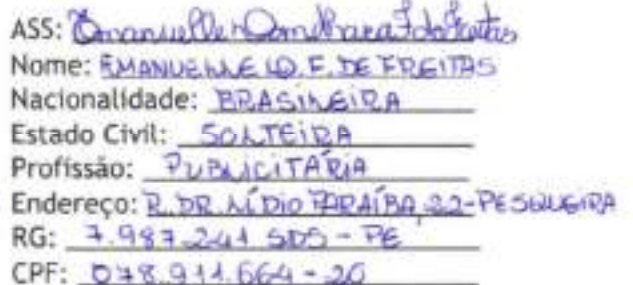 ASS: Emanuelle
Nome: EMANUELLE D. F. DE FREITAS
Nacionalidade: BRASILEIRA
Estado Civil: SOLTEIRA
Profissão: PUBLICITARIA
Endereço: R. DR. LÍDIO PARAÍBA, 22-PESQUEIRA
RG: 7.987.241 SDS - PE
CPF: 078.911.664-20